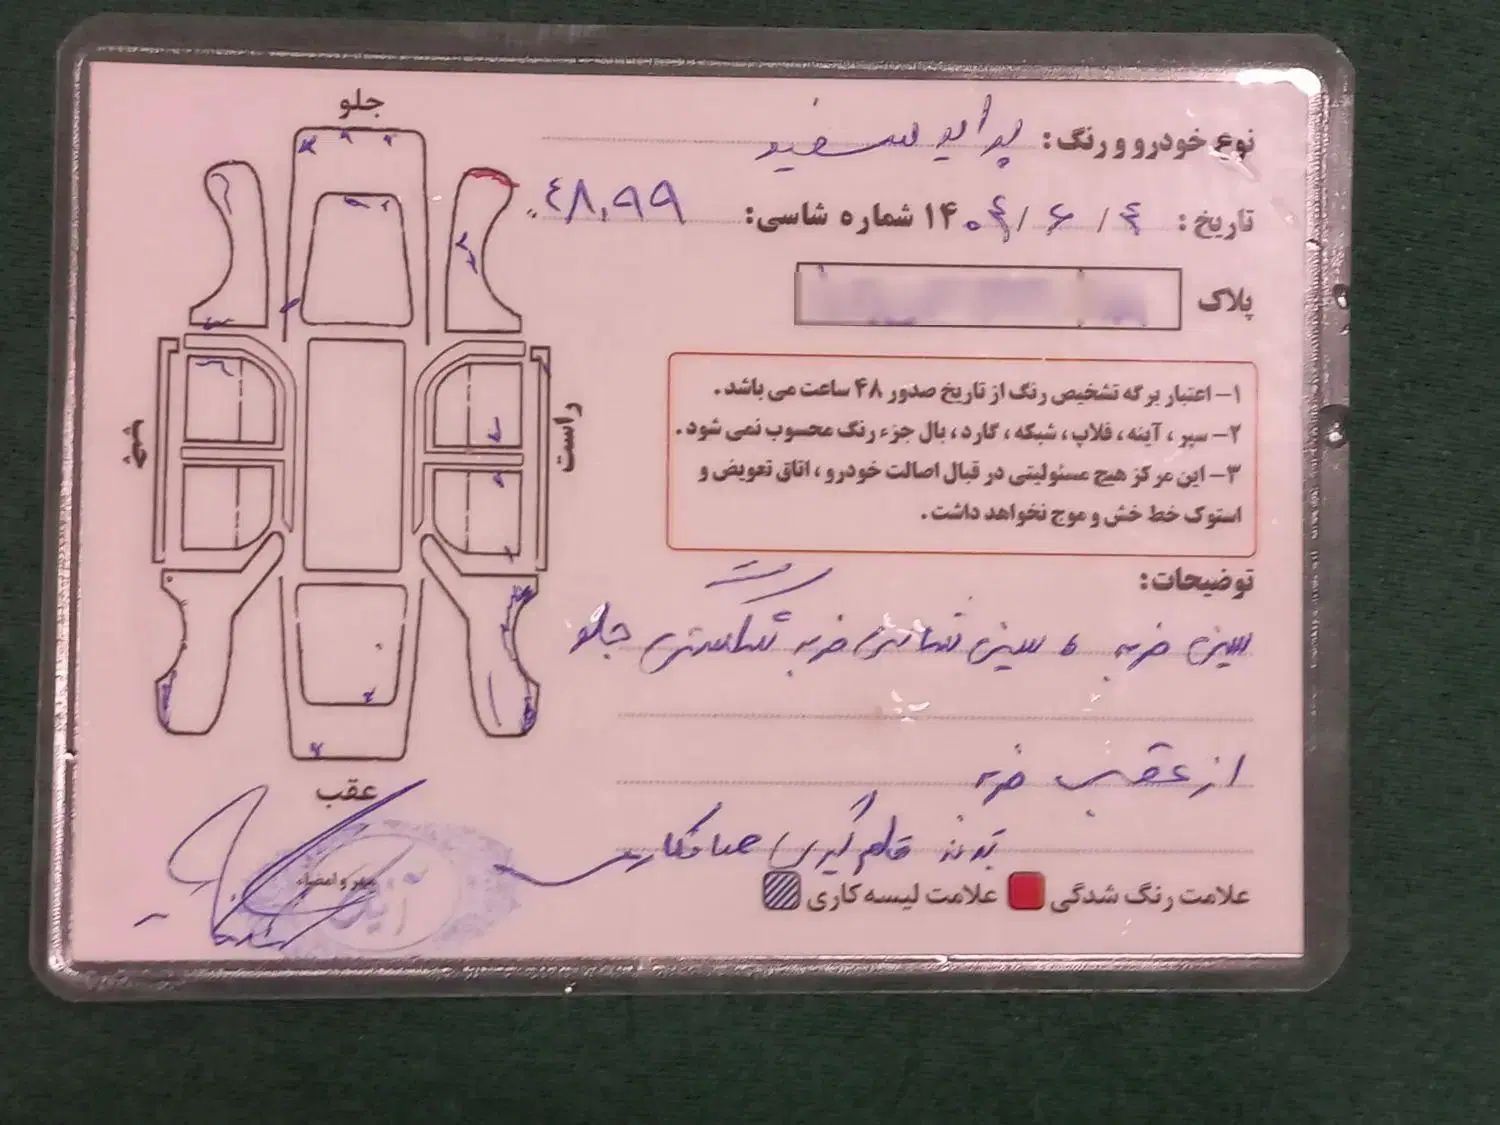 جلو
نوع خودرو و رنگ: پراید سفید
تاریخ: ۴ / ۶ / ۱۴۰۴ شماره شاسی: ۴۸۰۹۹
پلاک
۱- اعتبار برگه تشخیص رنگ از تاریخ صدور ۴۸ ساعت می باشد.
۲- سپر، آینه، فلاپ، شبکه، گارد، بال جزء رنگ محسوب نمی شود.
۳- این مرکز هیچ مسئولیتی در قبال اصالت خودرو، اتاق تعویض و
استوک خط خش و موج نخواهد داشت.
چپ
راست
توضیحات:
سینی ضربه و سینی شاسی ضربه شکستگی جلو
راست
از عقب ضربه
بدنه قلم گیری صافکاری
عقب
علامت رنگ شدگی علامت لیسه کاری
مهر و امضاء